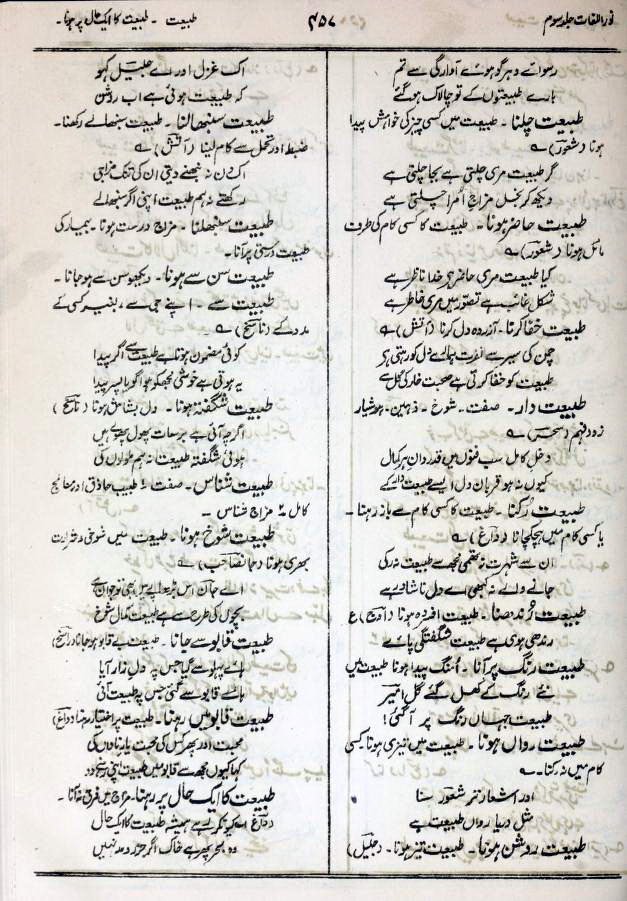 نور اللغات جلد سوم
۴۵۷
طبیعت ۔ طبیعت کا ایک حال پر رہنا ۔
رسوائے دہر گو ہوئے آوارگی سے تم
بارے طبیعتوں کے تو چالاک ہو گئے
طبیعت چلنا ۔ طبیعت میں کسی چیز کی خواہش پیدا
ہونا (شعور) ؎
گر طبیعت مری چلتی ہے بجا چلتی ہے
دیکھ کر بخل مزاجِ امرا چلتی ہے
طبیعت حاضر ہونا ۔ طبیعت کا کسی کام کی طرف
مائل ہونا (شعور) ؎
کیا طبیعت مری حاضر ہو خدا ناظر ہے
شکل غائب ہے تصور میں مری خاطر ہے
طبیعت خفا کرنا ۔ آزردہ دل کرنا (آتش) ؎
چمن کی سیر سے نفرت ہمارے دل کو رہتی ہے
طبیعت کو خفا کرتی ہے صحبت خار کی گل سے
طبیعت دار ۔ صفت ۔ شوخ ۔ ذہین ۔ ہوشیار
زود فہم (سحر) ؎
دخل کامل سب فنوں میں قدردانِ ہر کمال
کیوں نہ ہو قربان دل ایسے طبیعت دار کے
طبیعت رکنا ۔ طبیعت کا کسی کام سے باز رہنا ۔
یا کسی کام میں ہچکچانا (داغ) ؎
ان سے شہرت نہ تھمی مجھ سے طبیعت نہ رکی
جانے والے نہ کبھی اے دل ناشاد رہے
طبیعت رُندھنا ۔ طبیعت افسردہ ہونا (اوج) ع
رندھی ہوئی ہے طبیعت شگفتگی پائے
طبیعت رنگ پر آنا ۔ اُمنگ پیدا ہونا طبیعت میں
نئے رنگ کے کھل گئے گل امیرؔ
طبیعت جہاں رنگ پر آ گئی!
طبیعت رواں ہونا ۔ طبیعت میں تیزی ہونا کسی
کام میں نہ رکنا ۔ ؎
اور اشعار تر شعور سنا
مثل دریا رواں طبیعت ہے
طبیعت روشن ہونا ۔ طبیعت تیز ہونا ۔ (جلیل)
اک غزل اور اے جلیل کہو
کہ طبیعت ہوئی ہے اب روشن
طبیعت سنبھالنا ۔ طبیعت سنبھالے رکھنا ۔
ضبط اور تحمل سے کام لینا (آتش) ؎
اک دن نہ نبھنے دیتی ان کی تنک مزاجی
رکھتے نہ ہم طبیعت اپنی اگر سنبھالے
طبیعت سنبھلنا ۔ مزاج درست ہونا ۔ بیمار کی
طبیعت درستی پر آنا ۔
طبیعت سن سے ہونا ۔ دیکھو سن سے ہو جانا ۔
طبیعت سے ۔ اپنے جی سے ، بغیر کسی کے
مدد کے (ناسخ) ؎
کوئی مضمون ہوتا ہے طبیعت سے اگر پیدا
یہ ہوتی ہے خوشی مجھکو ہوا گویا پسر پیدا
طبیعت شگفتہ ہونا ۔ دل بشاش ہونا (ناسخ)
اگرچہ آئی ہے برسات پھول پھولے ہیں
ہوئی شگفتہ طبیعت نہ ہم ملولوں کی
طبیعت شناس ۔ صفت ۱ طبیب حاذق اور معالج
کامل ۲ مزاج شناس ۔
طبیعت شوخ ہونا ۔ طبیعت میں شوخی و شرارت
بھری ہونا (جانصاحب) ؎
بچوں کی طرح سے ہے طبیعت کمال شوخ
طبیعت قابو سے جانا ۔ طبیعت بے قابو ہو جانا (راسخ)
ہائے پہلو سے گیا جس پہ دل زار آیا
ہائے قابو سے گئی جس پر طبیعت آئی
طبیعت قابو میں رہنا ۔ طبیعت پر اختیار رہنا (داغ)
محبت اور پھر کس کی محبت یار نادان کی
کہا کیوں مجھ سے قابو میں طبیعت اپنی رہنے دو
طبیعت کا ایک حال پر رہنا ۔ مزاج میں فرق نہ آنا ۔
(داغ) ہمیشہ طبیعت کا ایک حال